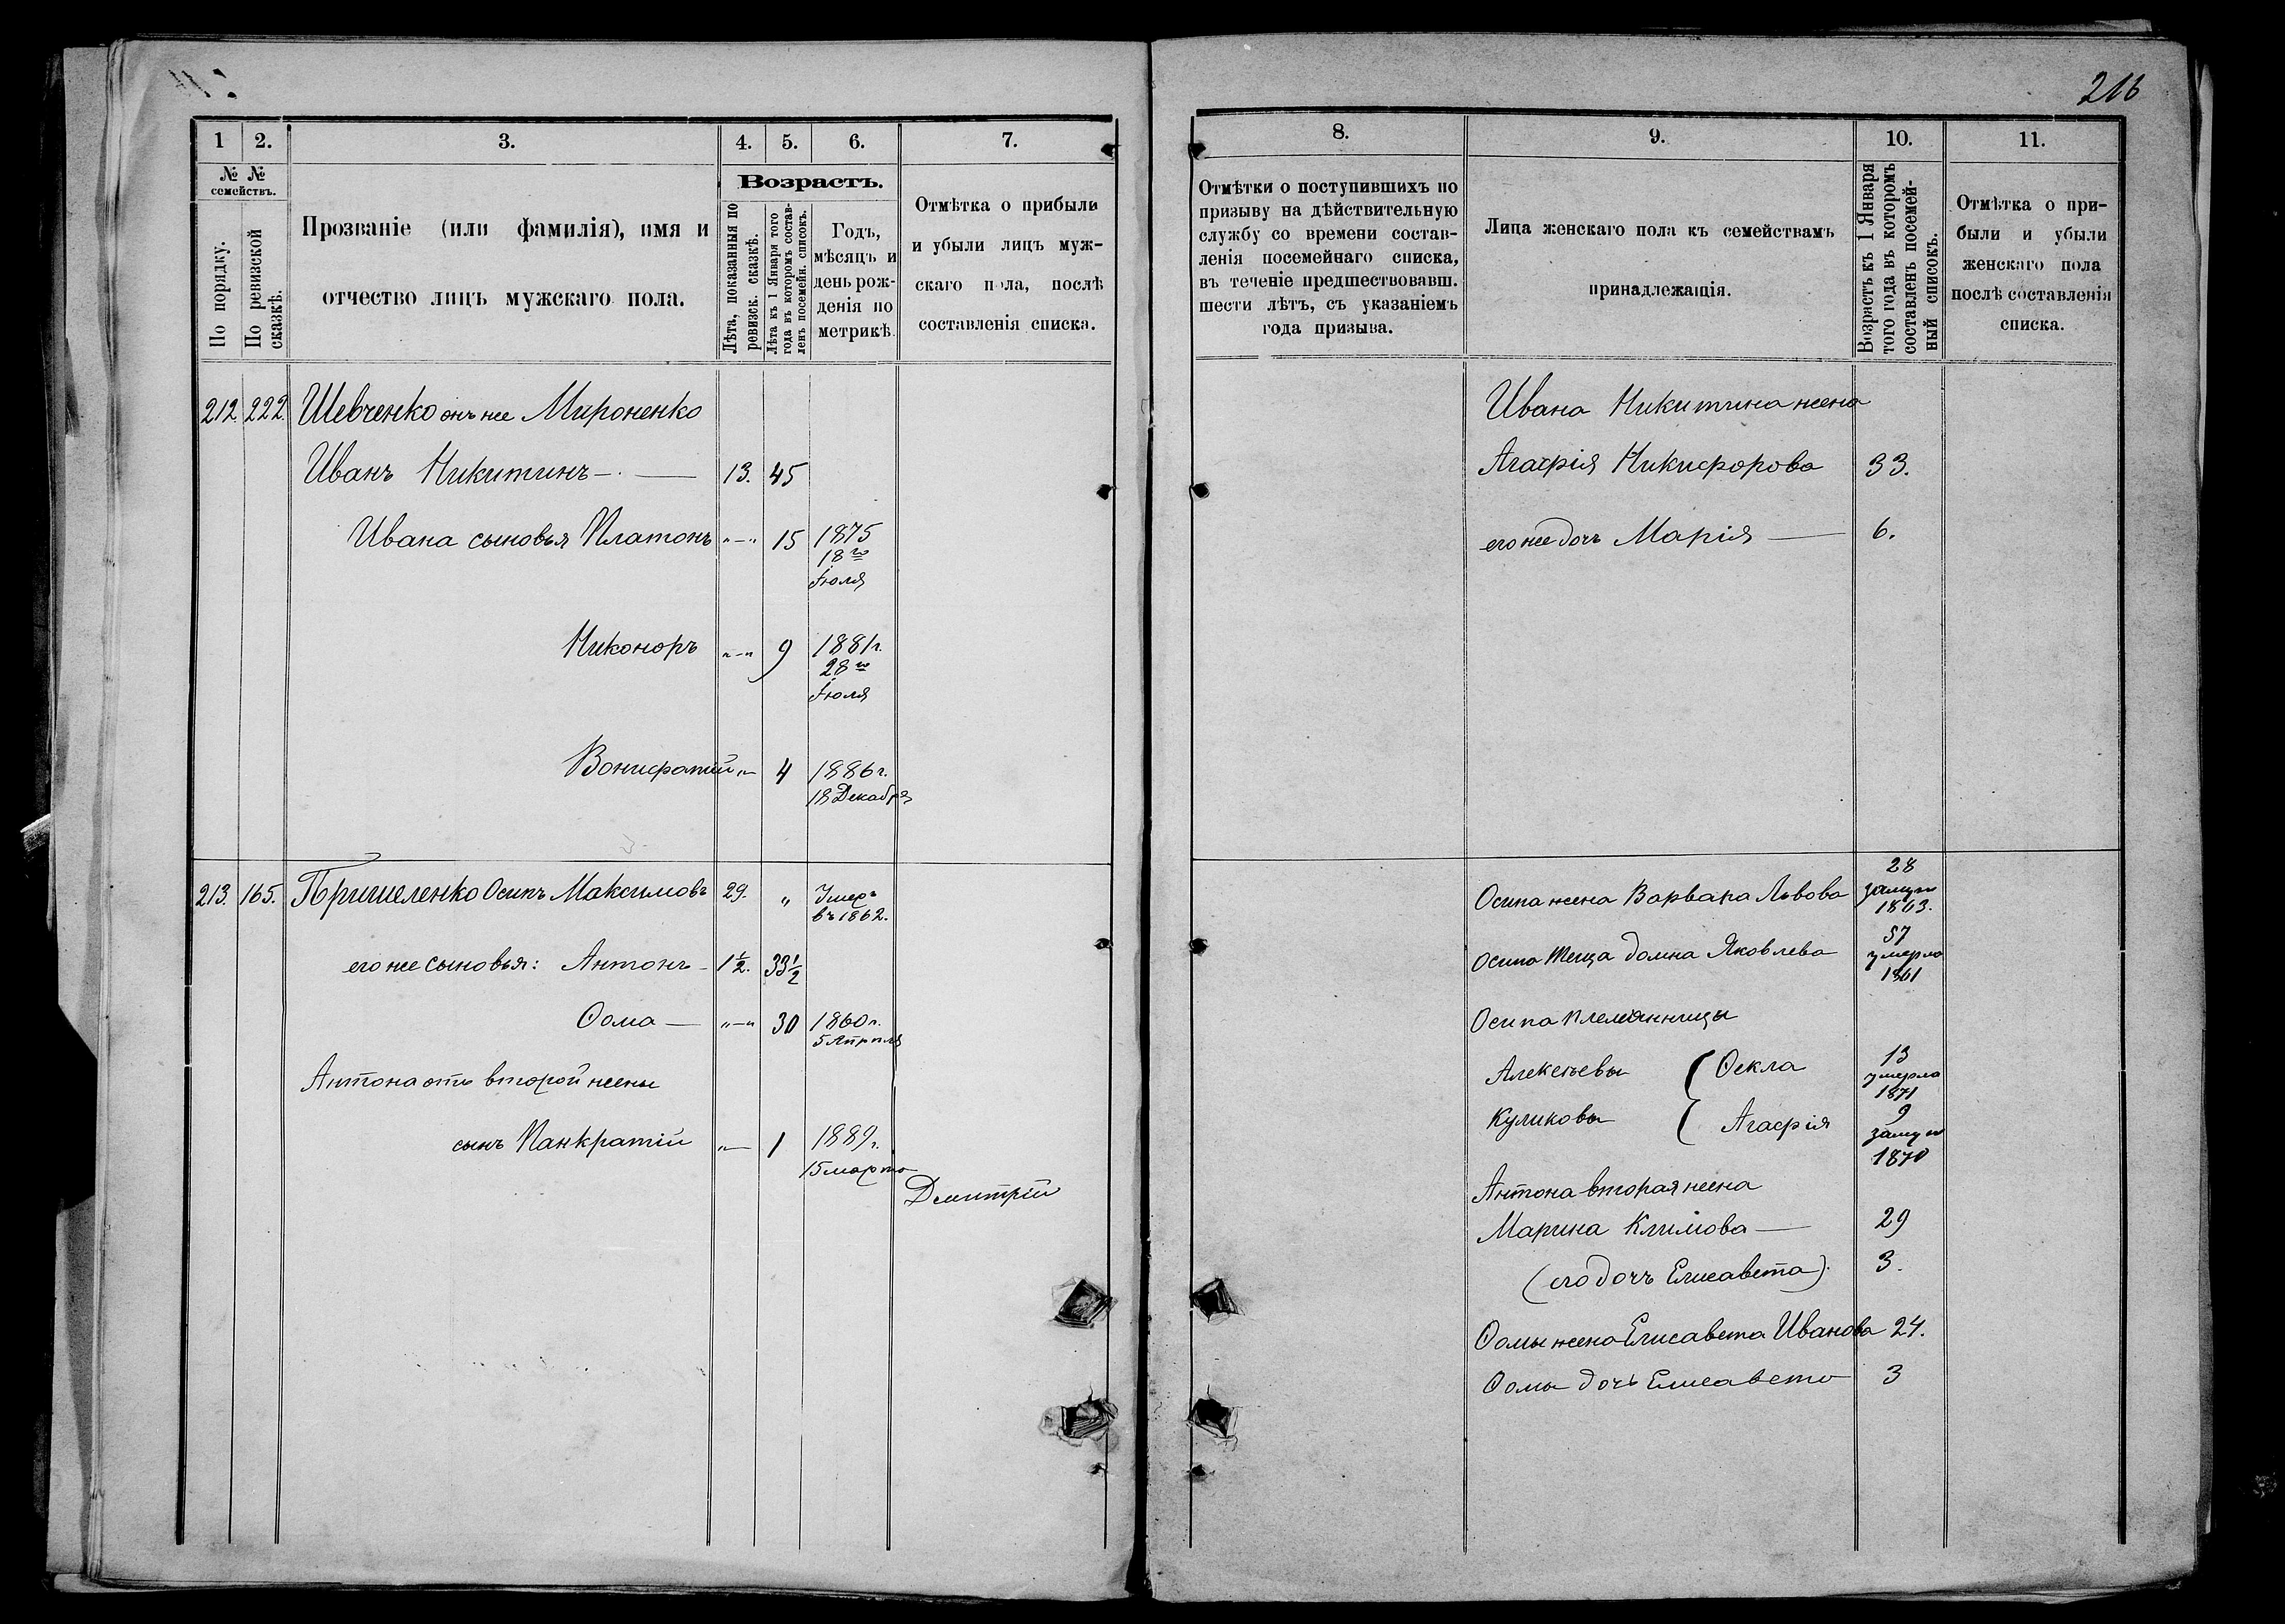 216
1 2. 3. 4. 5. 6. 7.
№ № семействъ.
По порядку.
По ревизской сказкѣ.
Прозваніе (или фамилія), имя и
отчество лицъ мужскаго пола.
Возрастъ.
Лѣта, показанныя по
ревизск. сказкѣ.
Лѣта къ 1 Января того
года въ которомъ состав-
ленъ посемейн. списокъ.
Годъ,
мѣсяцъ и
день рож-
денія по
метрикѣ.
Отмѣтка о прибыли
и убыли лицъ муж-
скаго пола, послѣ
составленія списка.
212. 222. Шевченко онъ же Мироненко
Иванъ Никитинъ 13. 45
Ивана сыновья Платонъ "–" 15 1875
18го
Іюля
Никоноръ "–" 9 1881г.
28го
Іюля
Вонифатій "– 4 1886г.
18 Декабря
213. 165. Пришеленко Осипъ Максимовъ 29. " Умеръ
въ 1862.
его же сыновья: Антонъ 1½. 33½
Ѳома — "–" 30 1860г.
5 Апрѣля
Антона отъ второй жены
сынъ Панкратій "— 1 1889г.
15 марта
Дмитрій
8. 9. 10. 11.
Отмѣтки о поступившихъ по
призыву на дѣйствительную
службу со времени состав-
ленія посемейнаго списка,
въ теченіе предшествовавш.
шести лѣтъ, съ указаніемъ
года призыва.
Лица женскаго пола къ семействамъ
принадлежащія.
Возрастъ къ 1 Января
того года въ которомъ
составленъ посемей-
ный списокъ.
Отмѣтка о при-
были и убыли
женскаго пола
послѣ составленія
списка.
Ивана Никитина жена
Агафія Никифорова 33.
его же дочь Марія — 6.
28
Осипа жена Варвара Львова замуж
1863.
57
Осипа теща Домна Яковлева умерла
1861
Осипа племянницы
Алексѣевы { Ѳекла 13
умерла
1871
Куликовы Агафія 9
замуж
1870
Антона вторая жена
Марина Климова — 29
(его дочь Елисавета). 3.
Ѳомы жена Елисавета Иванова 24.
Ѳомы дочь Елисавета 3